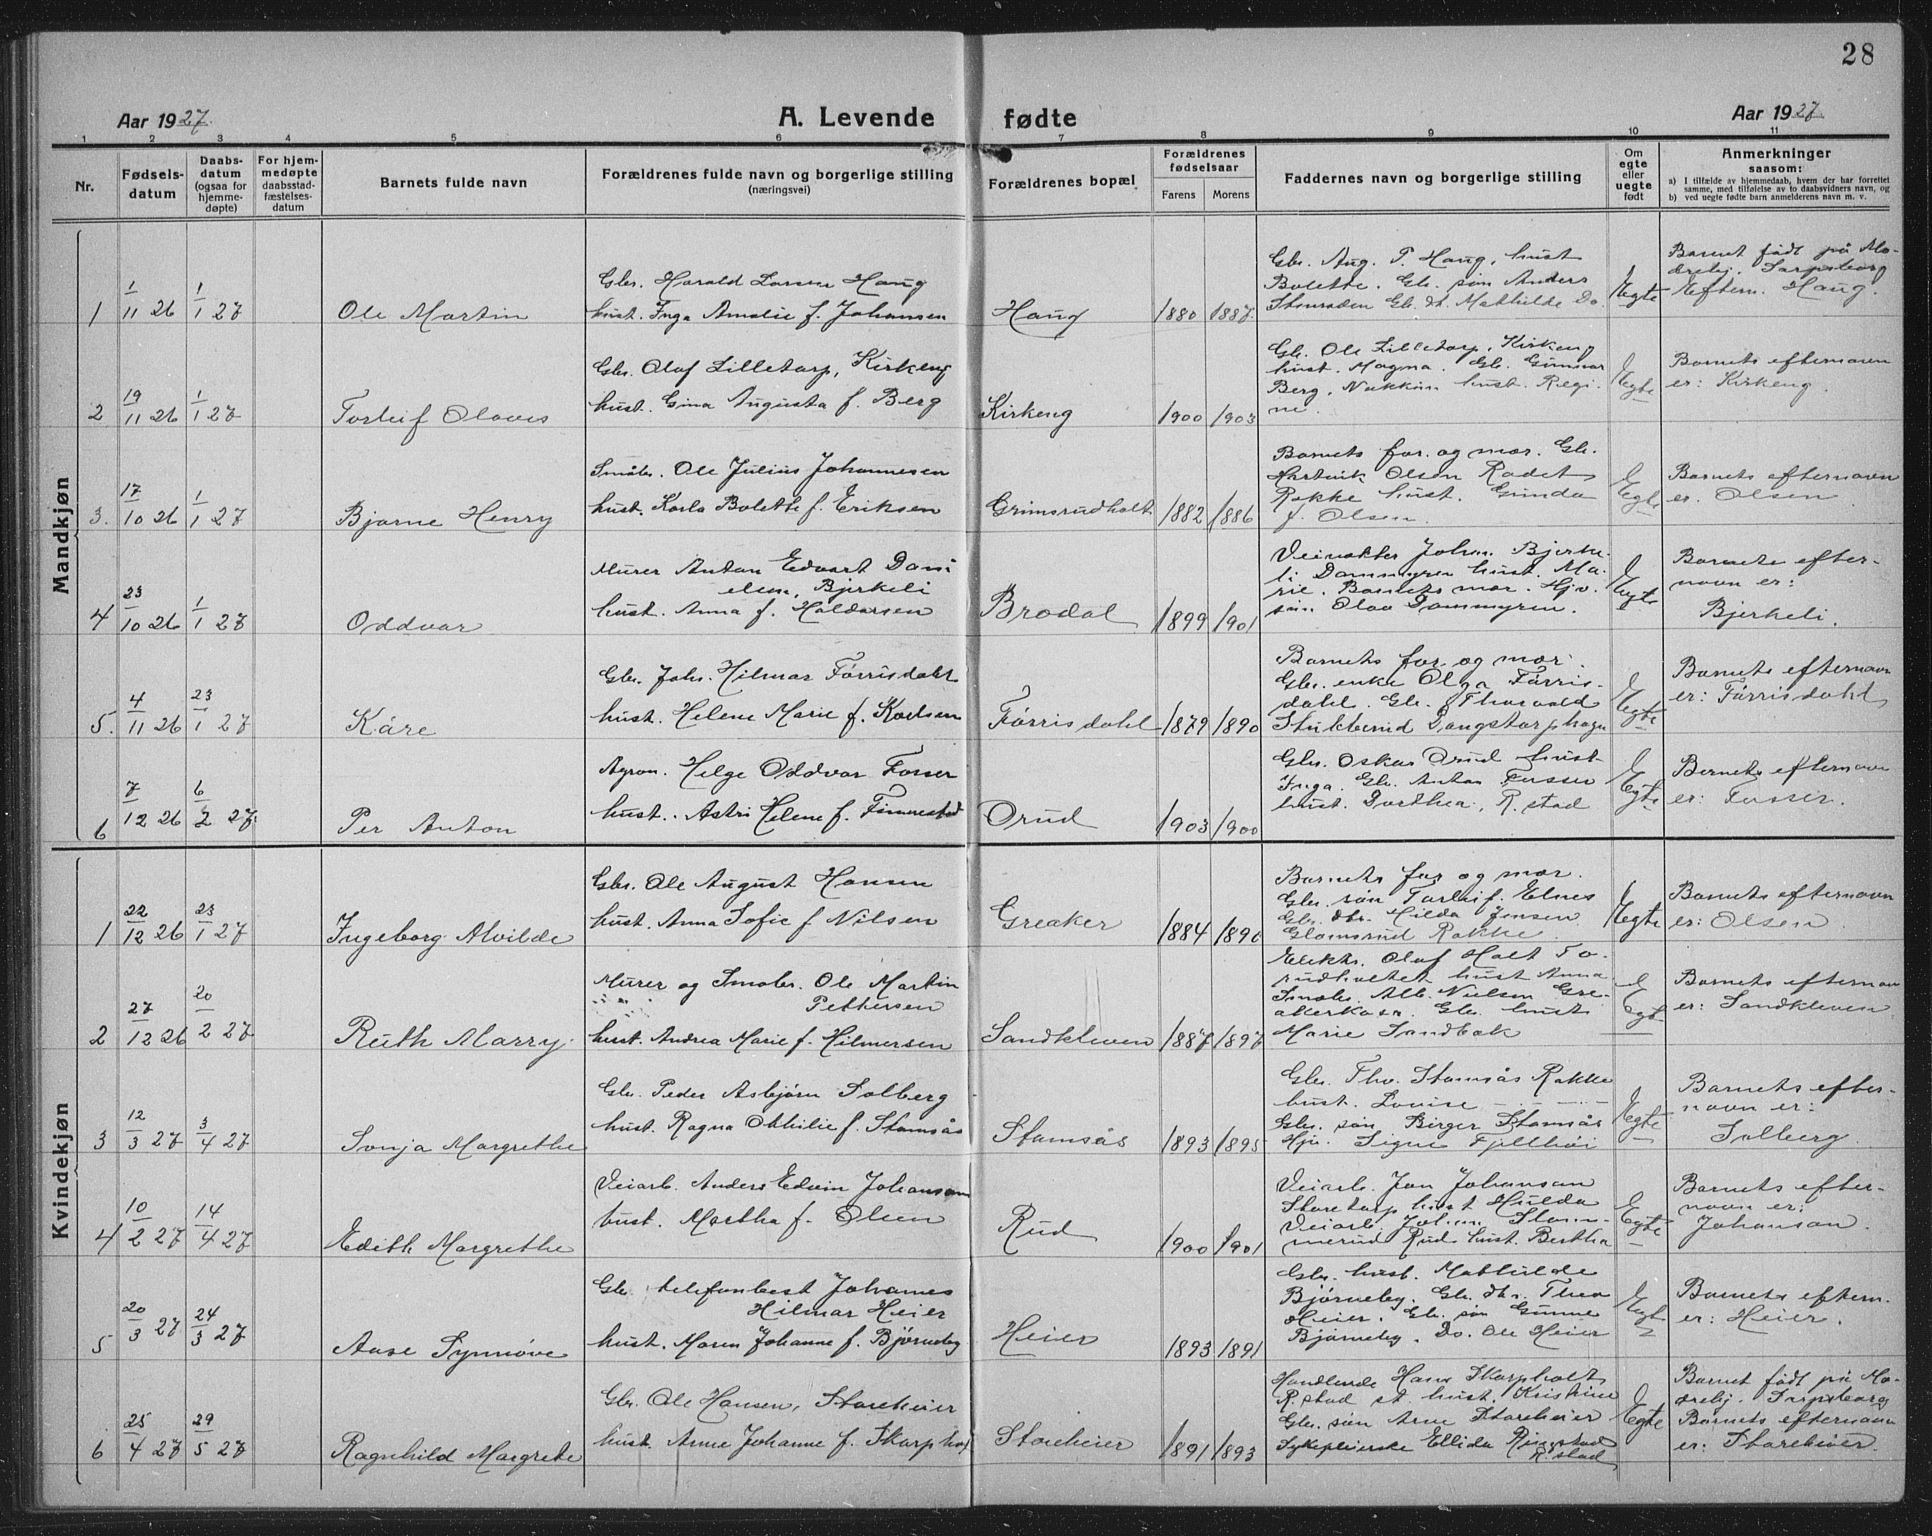 28
Aar 1927.
A. Levende
fødte
Aar 1927
1 2 3 4 5 6 7 8 9 10 11
Nr.
Fødsels-
datum
Daabs-
datum
(ogsaa for
hjemme-
døpte)
For hjem-
medøpte
daabsstad-
fæstelses-
datum
Barnets fulde navn
Forældrenes fulde navn og borgerlige stilling
(næringsvei)
Forældrenes bopæl
Forældrenes
fødselsaar
Farens Morens
Faddernes navn og borgerlige stilling
Om
egte
eller
uegte
født
Anmerkninger
saasom:
a) I tilfælde av hjemmedaab, hvem der har forrettet
samme, med tilføielse av to daabsvidners navn, og
b) ved uegte fødte barn anmelderens navn m. v.
Mandkjøn
1 1/11 26 1/1 27 Ole Martin
Gbr. Harald Larsen Haug
hust. Inga Amalie f. Johansen
Haug 1880 1887.
Gbr. Aug. P. Haug, hust
Bolette. Gb. søn Anders
Stomsæden Gb. dt. Mathilde Do
Egte
Barnet født på Mo-
drehj. Sarpsborg
Eftern. Haug.
2 19/11 26 1/1 27 Torleif Olaves
Gbr. Olaf Lilletorp, Kirkeng
hust. Gina Augusta f. Berg
Kirkeng 1900 1903
Gb. Ole Lilletorp, Kirkeng
hust. Magna. Gb. Gunnar
Berg, Nokkim hust. Regi-
ne.
Egte
Barnets efternavn
er: Kirkeng.
3. 17/10 26 1/1 27 Bjarne Henry
Småbr. Ole Julius Johannesen
hust. Karla Bolette f. Eriksen
Grimsrudholt 1882 1886
Barnets far og mor. Gb.
Hartvik Olsen Rødet
Rokke hust. Gunda
f. Olsen.
Egte
Barnets efternavn
er. Olsen
4 23/10 26 1/1 27 Oddvar
Murer Anton Edvart Dani
elsen, Bjerkeli
hust. Anna f. Haldorsen
Brødal 1899 1901
Veivokter Johan Bjerke-
li Dammyren hust. Ma-
rie. Barnets mor. Hjv.
søn Olav Dammyren.
Egte
Barnets efter-
navn er:
Bjerkeli.
5. 4/11 26 23/1 27 Kåre
Gbr. Johs. Hilmar Førrisdahl
hust. Helene Marie f. Karlsen
Førrisdahl 1879 1890
Barnets far og mor.
Gbr. enke Olga Førris-
dahl. Gb. Thorvald
Stukkerud Langstorphagn
Egte
Barnets efternavn
er: Førrisdahl
6 7/12 26 6/2 27. Per Anton
Agron. Helge Oddvar Fosser
hust. Astri Helene f. Finnestad
Ørud 1903 1900
Gbr. Oskar Ørud hust
Inga. Gb. Anton Fosser
hust. Dorthea, R. stad
Egte
Barnets efternavn
er: Fosser.
Kvindekjøn
1 22/12 26 23/1 27 Ingeborg Alvilde
Gbr. Ole August Hansen
hust. Anna Sofie f Nilsen
Greaker 1884 1890
Barnets far og mor.
Gb. søn Torleif Elnes
Gb. dtr. Hilda Jensen
Glomsrud Rokke.
Egte
Barnets efternavn
er: Olsen
2 27/12 26 20/2 27 Ruth Marry.
Murer og Småbr. Ole Martin
Pettersen
hust. Andrea Marie f. Hilmersen
Sandkleven 1887 1897
Elektr. Olaf Holt To-
rudholtet hust Anna
Småbr. Alb. Nielsen Gre-
akerkasa. Gb. hust
Marie Sandbæk
Egte
Barnets efternavn
er: Sandkleven
3 12/3 27 3/4 27 Sonja Margrethe
Gbr. Peder Asbjørn Solberg
hust. Ragna Othilie f. Stomsås
Stomsås 1893 1895
Gbr. Thv. Stomsås Rokke
hust. Lovise
Gbr. søn Birger Stomsås
Hjv. Signe Fjellhøi
Egte
Barnets efter-
navn er:
Solberg.
4 10/2 27 14/4 27 Edith Margrethe
Veiarb. Anders Edvin Johansson
hust. Martha f. Olsen
Rud 1900 1901
Veiarb. Jon Johansan
Storetorp hust Hulda
Veiarb. Johan Stom-
merud Rud hust. Bertha
Egte
Barnets efter-
navn er:
Johansan.
5 20/3 27 24/3 27 Aase Synnøve
Gbr. telefonbest Johannes
Hilmar Heier
hust. Maren Johanne f. Bjørneby
Heier 1893 1891
Gbr. hust. Mathilde
Bjørneby. Gb. dtr. Thea
Heier. Gb. søn Gunne
Bjørneby. Do. Ole Heier
Egte
Barnets eftern.
er: Heier.
6 25/4 27 29/5 27 Ragnhild Margrete
Gbr. Ole Hansen, Storeheier
hust. Anne Johanne f. Skarphol
Storeheier 1891 1893
Handlende Hans Skarpholt
R. stad st hust. Kristine
Gbr. søn Arne Storeheier
Sykepleierske Ellida Ringstad
R. stad
Egte
Barnet født på Mo-
drehj. Sarpsborg
Barnets efternavn
er: Storeheier.